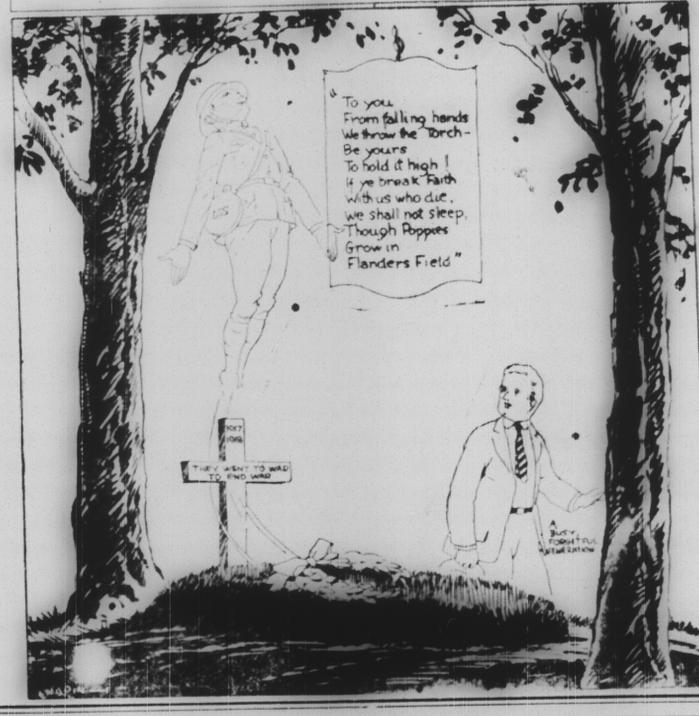 "To you
From falling hands
We throw the Torch-
Be yours
To hold it high!
If ye break Faith
With us who die,
We shall not sleep,
Though Poppies
Grow in
Flanders Field"
1917
1918
THEY WENT TO WAR
TO END WAR
A
BUSY,
FORGETFUL
GENERATION